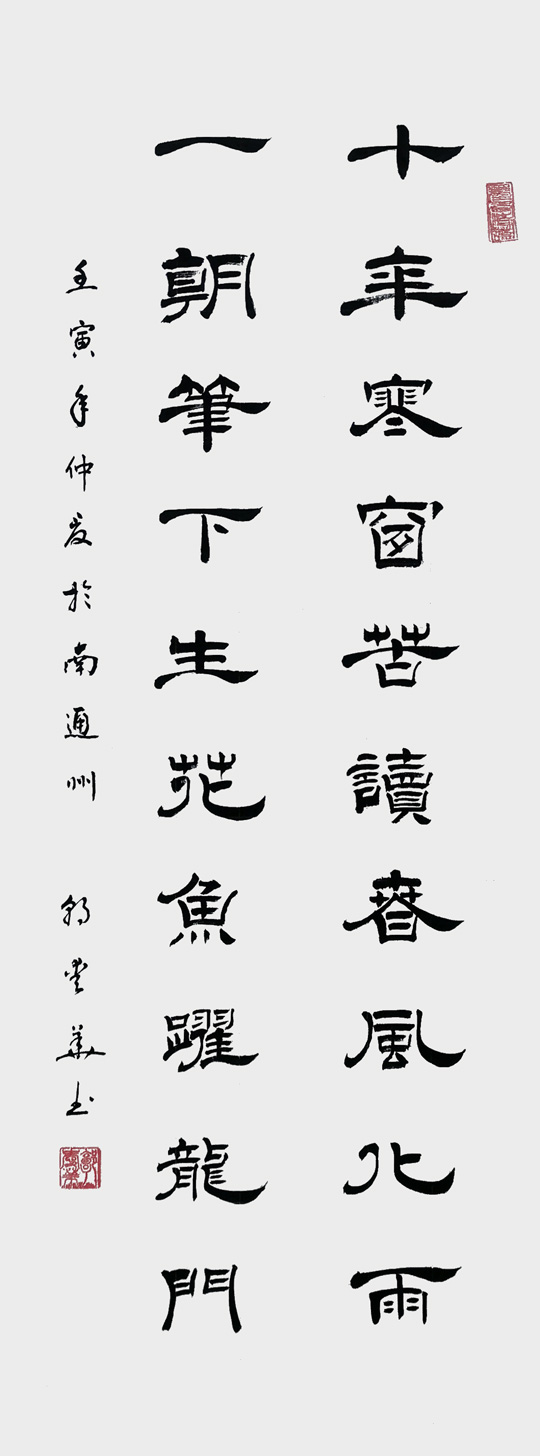 十年寒窗苦讀春風化雨
一朝筆下生花魚躍龍門
壬寅年仲夏於南通州
雲華書